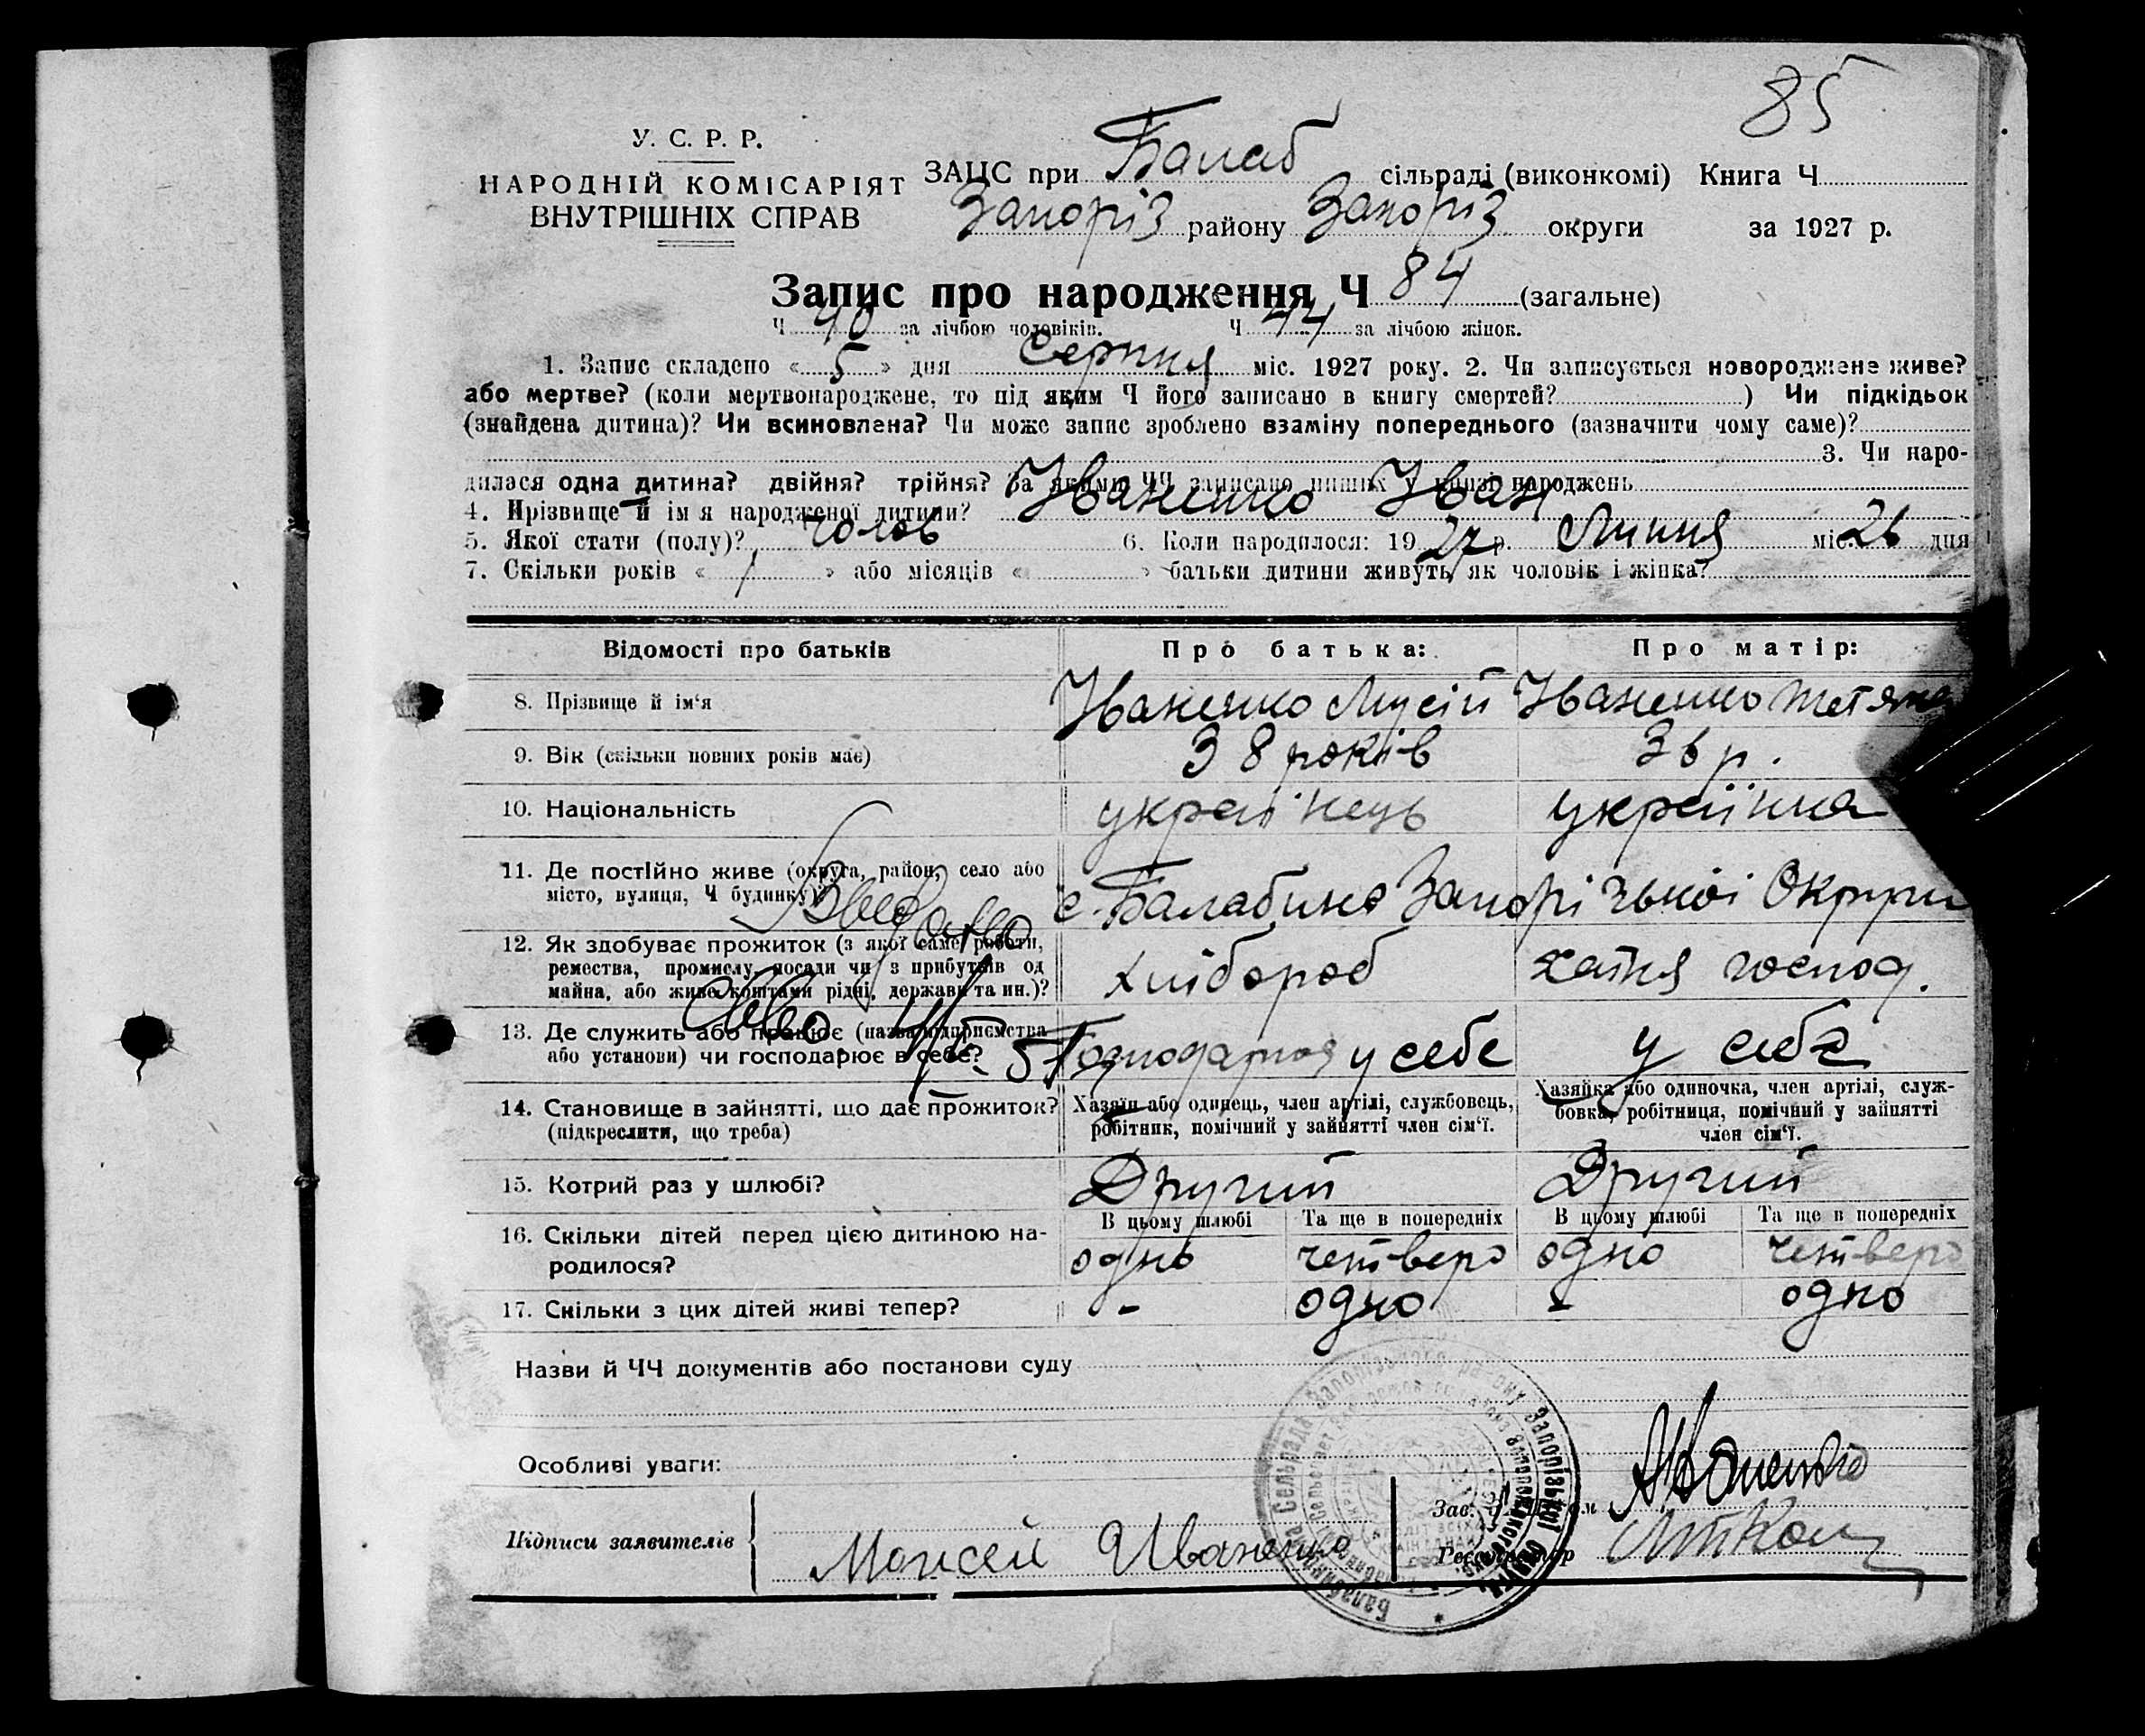 85
У. С. Р. Р.
НАРОДНІЙ КОМІСАРІЯТ
ВНУТРІШНІХ СПРАВ
ЗАЦС при Балаб сільраді (виконкомі) Книга Ч
Запоріз району Запоріз округи за 1927 р.
Запис про народження Ч 84 (загальне)
Ч 40 за лічбою чоловіків. Ч 44 за лічбою жінок.
1. Запис складено « 5 » дня Серпня міс. 1927 року. 2. Чи записується новороджене живе?
або мертве? (коли мертвонароджене, то під яким Ч його записано в книгу смертей? ) Чи підкідьок
(знайдена дитина)? Чи всиновлена? Чи може запис зроблено взаміну попереднього (зазначити чому саме)?
3. Чи наро-
дилася одна дитина? двійня? трійня? За якими ЧЧ записано инших у книзі народжень
4. Прізвище й ім'я народженої дитини? Іваненко Іван
5. Якої стати (полу)? чолов 6. Коли народилося: 1927 р. Липня міс. 26 дня
7. Скільки років « / » або місяців « » батьки дитини живуть як чоловік і жінка?
Відомості про батьків Про батька: Про матір:
8. Прізвище й ім'я Іваненко Мусій Іваненко Тетяна
9. Вік (скільки повних років має) 38 років 36 р.
10. Національність українець українка
11. Де постійно живе (округа, район, село або
місто, вулиця, Ч будинку)? с. Балабино Запорізької Округи
12. Як здобуває прожиток (з якої саме роботи,
ремества, промислу, посади чи з прибутків од
майна, або живе коштами рідні, держави та ин.)? хлібороб хатня господ.
13. Де служить або працює (назва підприємства
або установи) чи господарює в себе? Господарює у себе у себе
14. Становище в зайнятті, що дає прожиток?
(підкреслити, що треба)
Хазяїн або одинець, член артілі, службовець,
робітник, помічний у зайнятті член сім'ї.
Хазяйка або одиночка, член артілі, служ-
бовка, робітниця, помічний у зайнятті
член сім'ї.
15. Котрий раз у шлюбі? Другий Другий
В цьому шлюбі Та ще в попередніх В цьому шлюбі Та ще в попередніх
16. Скільки дітей перед цією дитиною на-
родилося? одно четверо одно четверо
17. Скільки з цих дітей живі тепер? - одно - одно
Назви й ЧЧ документів або постанови суду
Особливі уваги:
Підписи заявителів Моисей Иваненко
Зав. Іваненко
Реєстратор